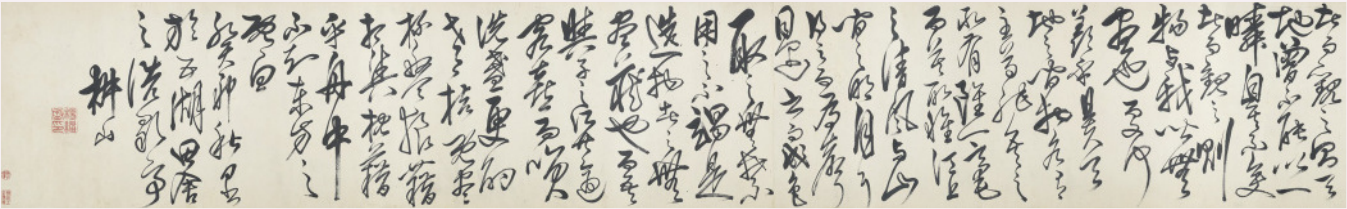 者而觀之則天
地曾不能以一
瞬自其不變
者而觀之則
物與我皆無
盡也又何
羨乎且夫天
地之間物各有
主苟非吾之
所有雖一毫
而莫取惟江上
之清風與山
間之明月耳
得之而為聲
目遇之而成色
取之無禁
用之不竭是
造物者之無
盡藏也而吾
與子之所共適
客喜而笑
洗盞更酌
肴核既盡
杯盤狼藉
相與枕藉
乎舟中
不知東方之
既白
癸卯秋
於石湖田舍
之浩歌亭
枝山